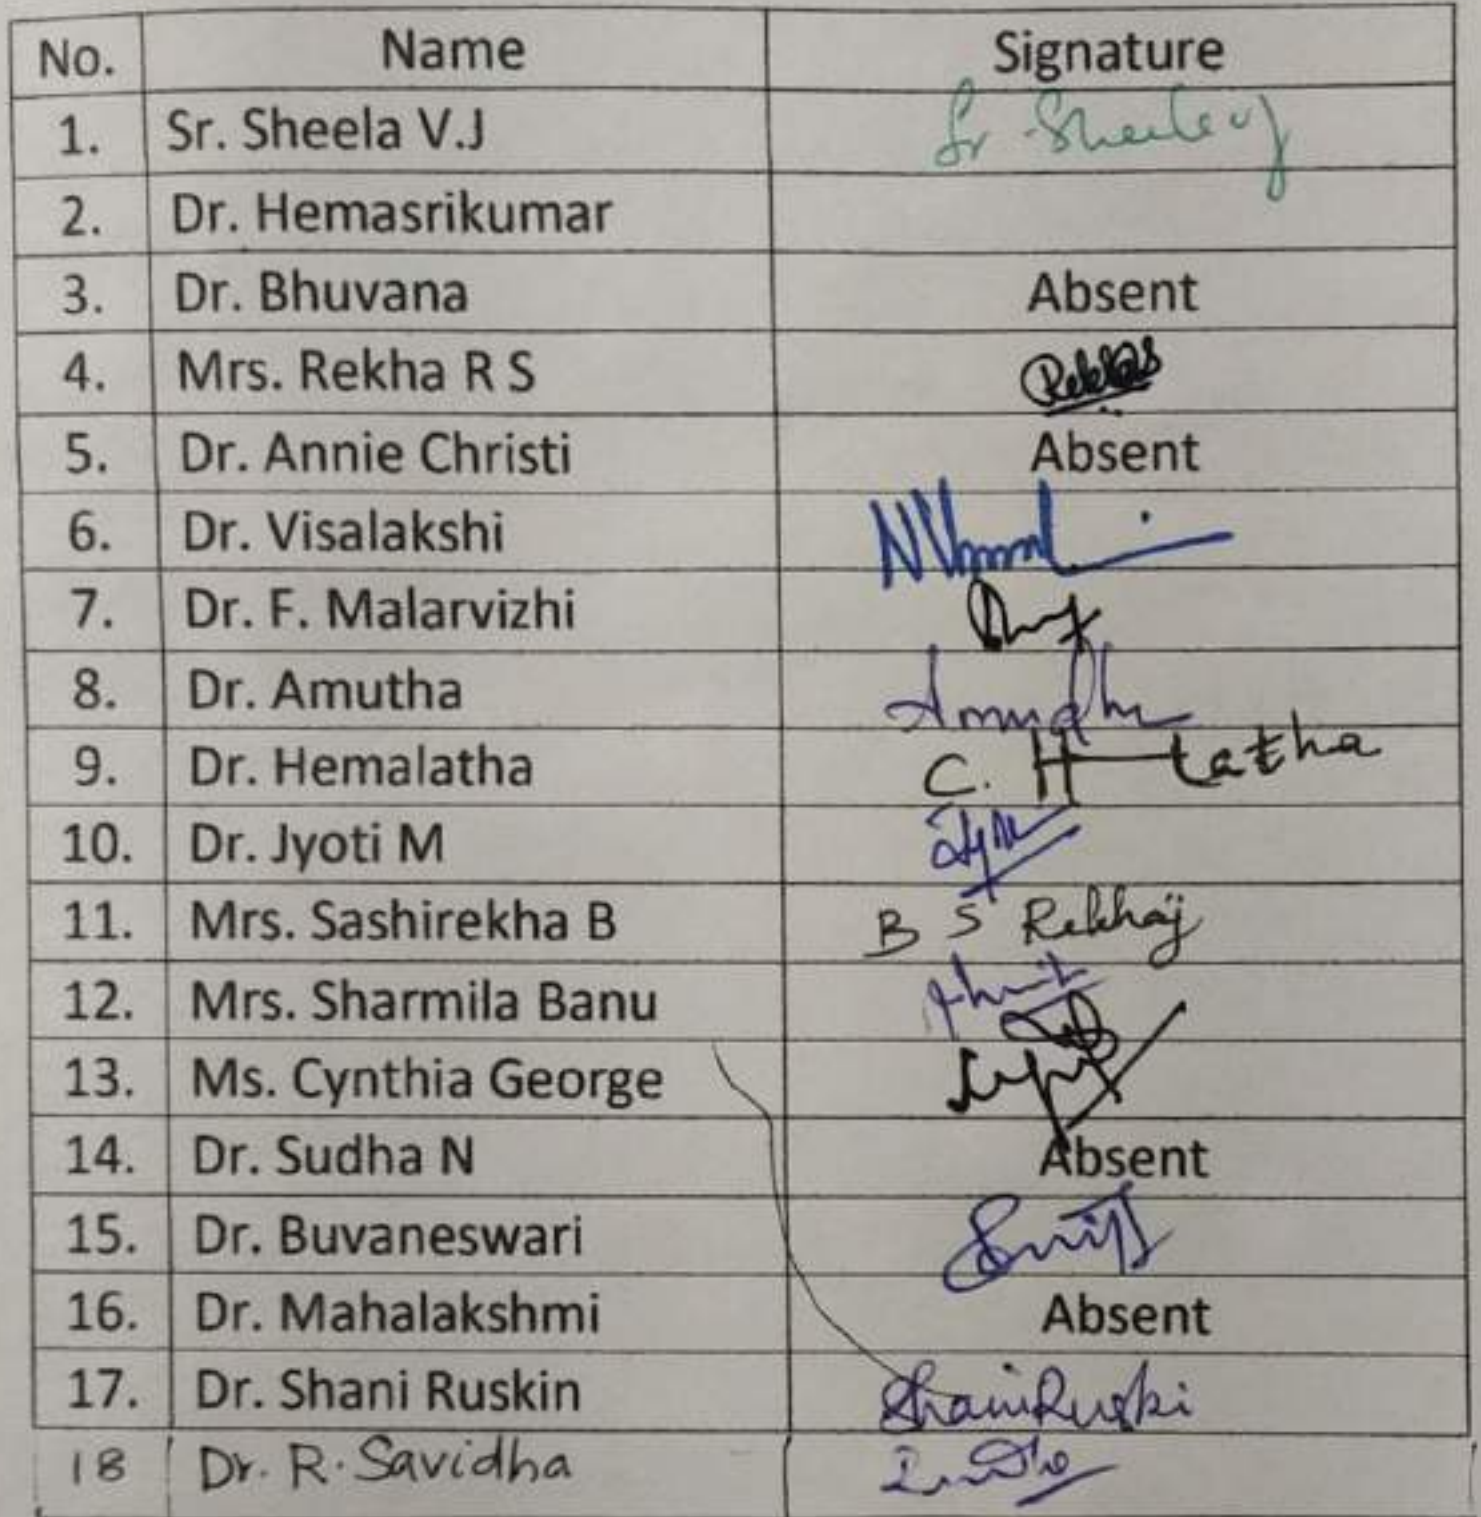 No. Name Signature
1. Sr. Sheela V.J Sr. Sheela VJ
2. Dr. Hemasrikumar
3. Dr. Bhuvana Absent
4. Mrs. Rekha R S
5. Dr. Annie Christi Absent
6. Dr. Visalakshi
7. Dr. F. Malarvizhi
8. Dr. Amutha
9. Dr. Hemalatha C. H latha
10. Dr. Jyoti M
11. Mrs. Sashirekha B B S Rekha
12. Mrs. Sharmila Banu
13. Ms. Cynthia George
14. Dr. Sudha N Absent
15. Dr. Buvaneswari
16. Dr. Mahalakshmi Absent
17. Dr. Shani Ruskin
18 Dr. R. Savidha